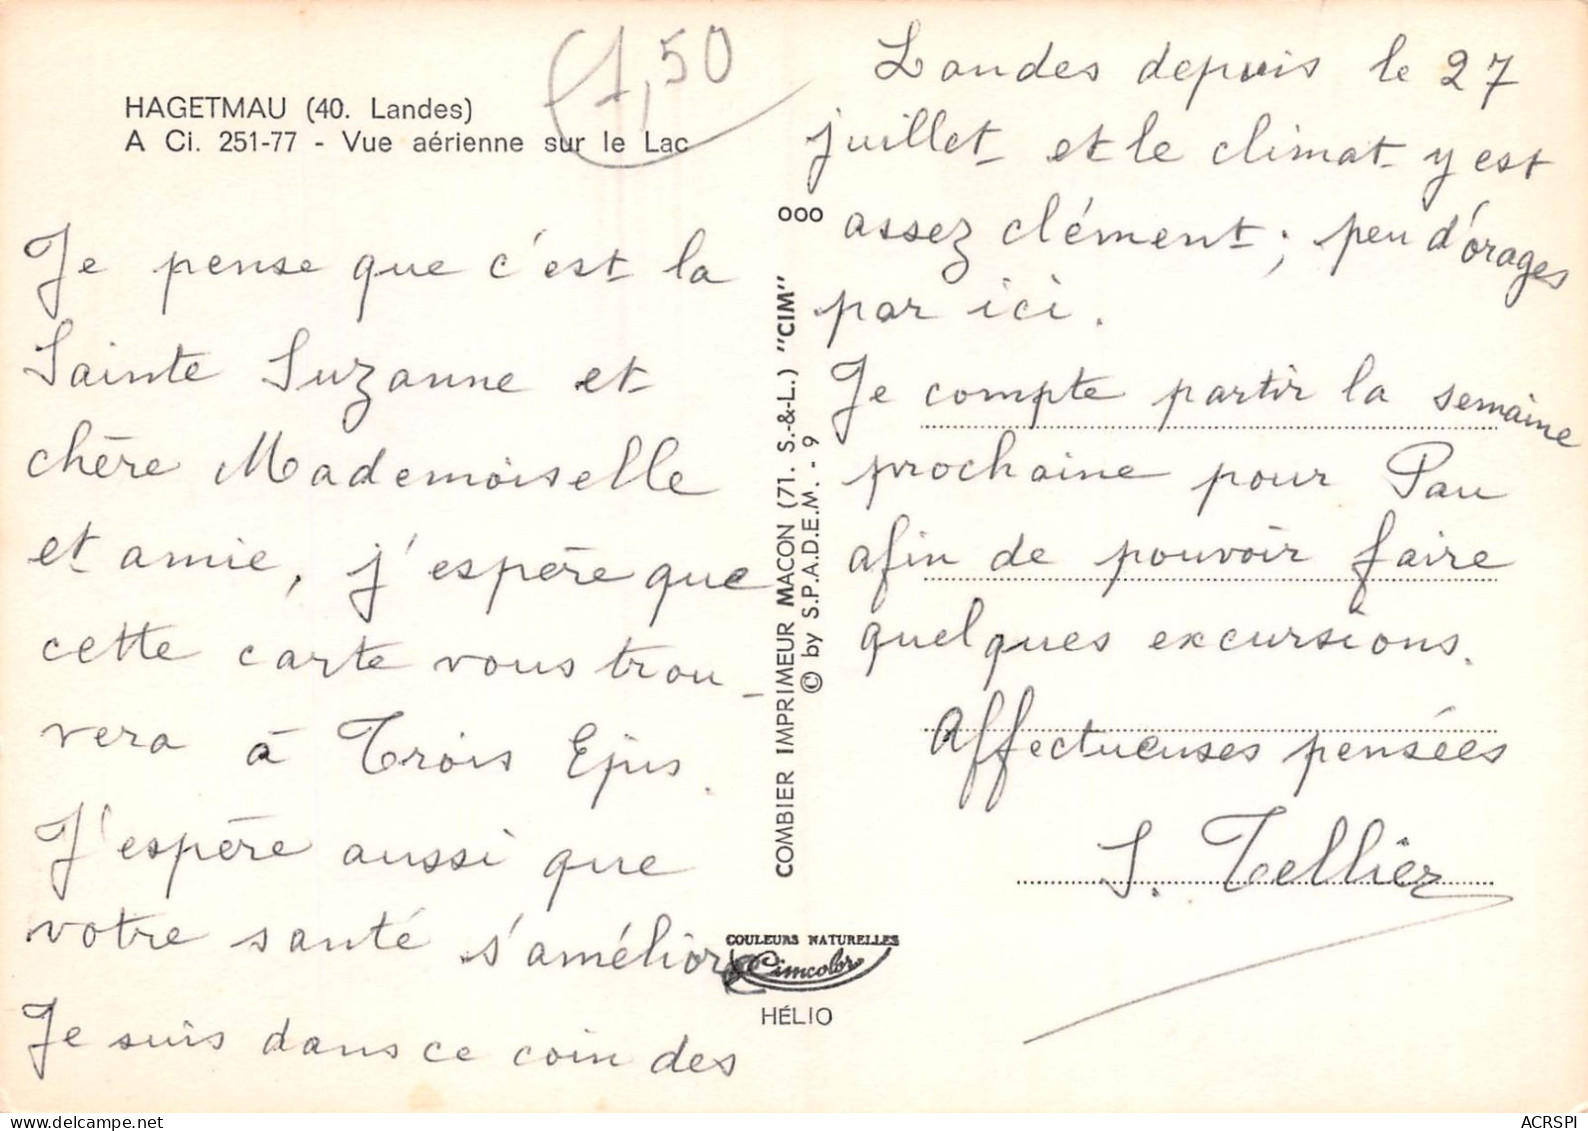 HAGETMAU (40. Landes)
A Ci. 251-77 - Vue aérienne sur le Lac
1,50
Je pense que c'est la
Sainte Suzanne et
chère Mademoiselle
et amie, j'espère que
cette carte vous trou_
vera à Trois Epis.
J'espère aussi que
votre santé s'améliore
Je suis dans ce coin des
Landes depuis le 27
juillet et le climat y est
assez clément ; peu d'orages
par ici.
Je compte partir la semaine
prochaine pour Pau
afin de pouvoir faire
quelques excursions.
Affectueuses pensées
S. Tellier
COMBIER IMPRIMEUR MACON (71. S.-&-L.) "CIM"
© by S.P.A.D.E.M. - 9
OOO
COULEURS NATURELLES
Cimcolor
HÉLIO
ACRSPI